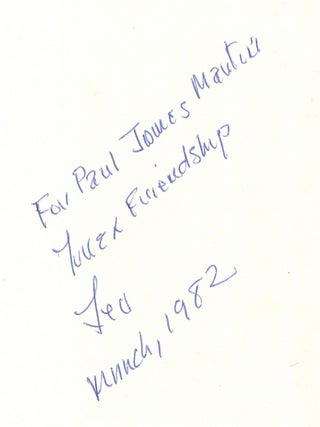 For Paul James Martin
Friendship
Leo
March, 1982